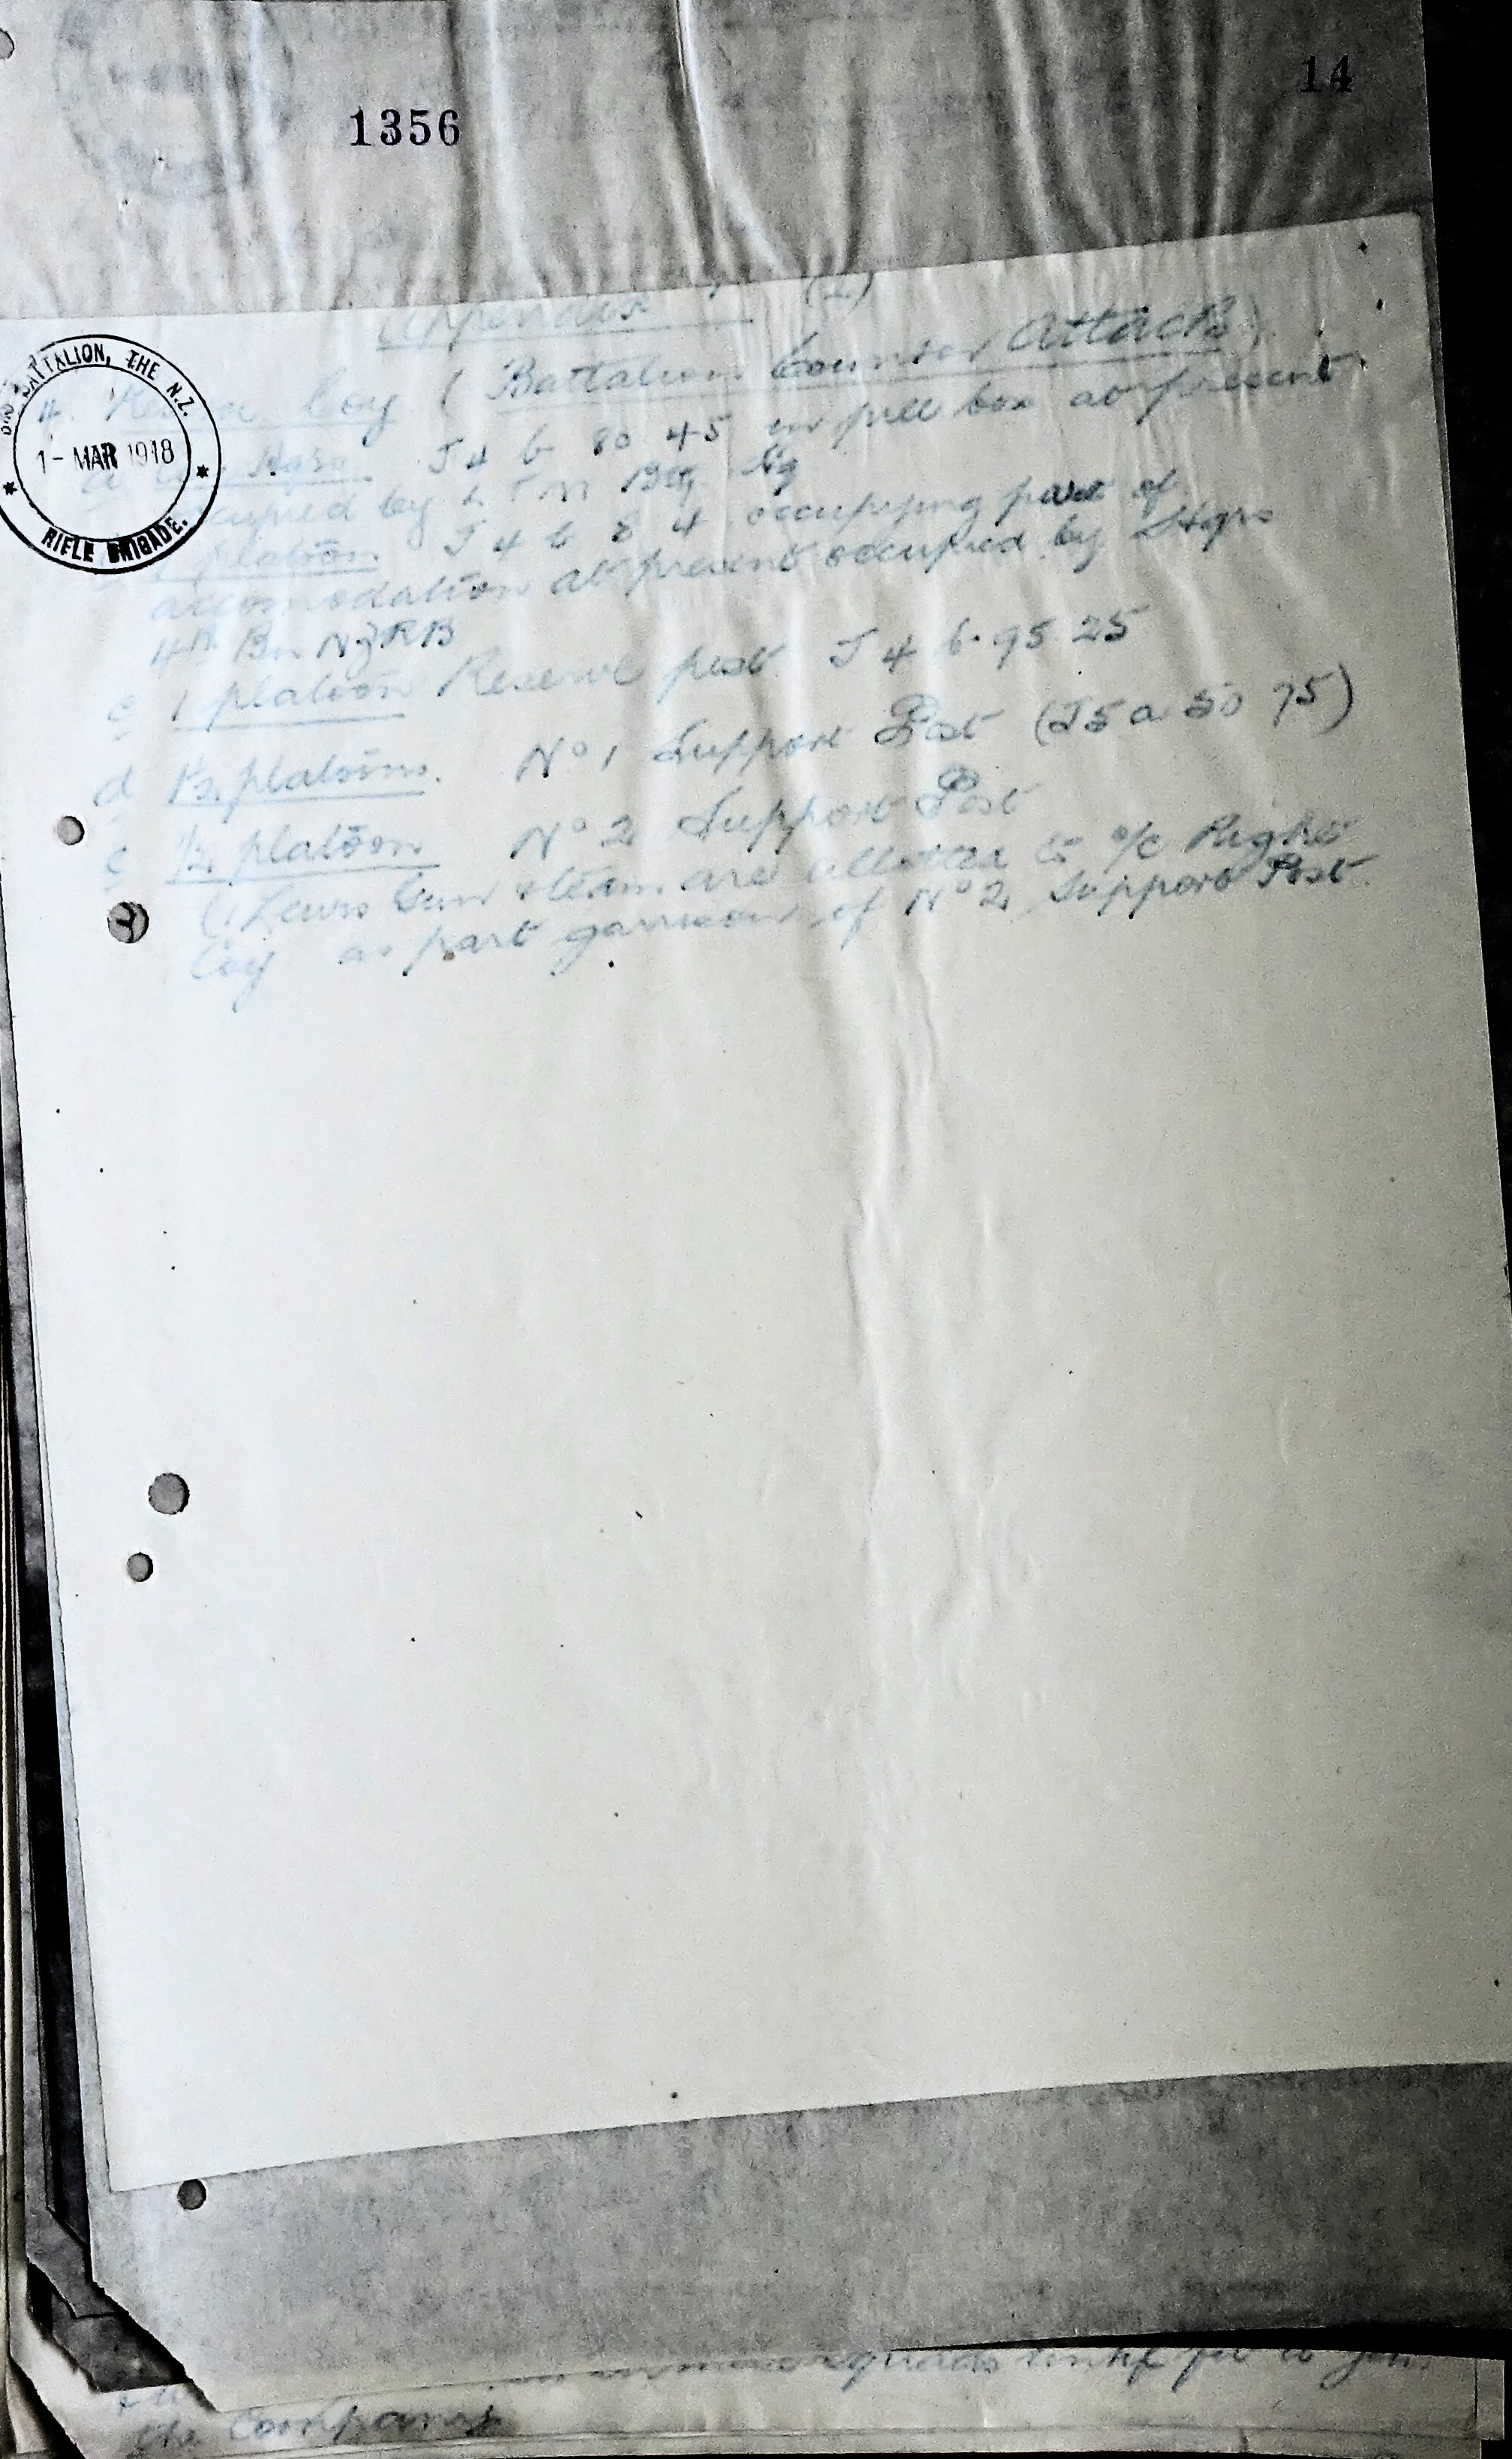 14
1356
Appendix (2)
4. Coy (Battalion Counter Attack)
Hqrs. J 4 b 80 45 in pill box at present
occupied by L T M Bty Hq
platoon J 4 b 8 4 occupying part of
accomodation at present occupied by Hqrs
4th Bn NZRB
c 1 platoon Reserve post J 4 b. 95 25
d ½ platoon. No 1 Support Post (J5 a 50 75)
e ½ platoon No 2 Support Post
(1 Lewis Gun & team are allotted to o/c Right
Coy as part garrison of No 2 Support Post
BATTALION, THE N.Z.
1 - MAR 1918
RIFLE BRIGADE.
the Company